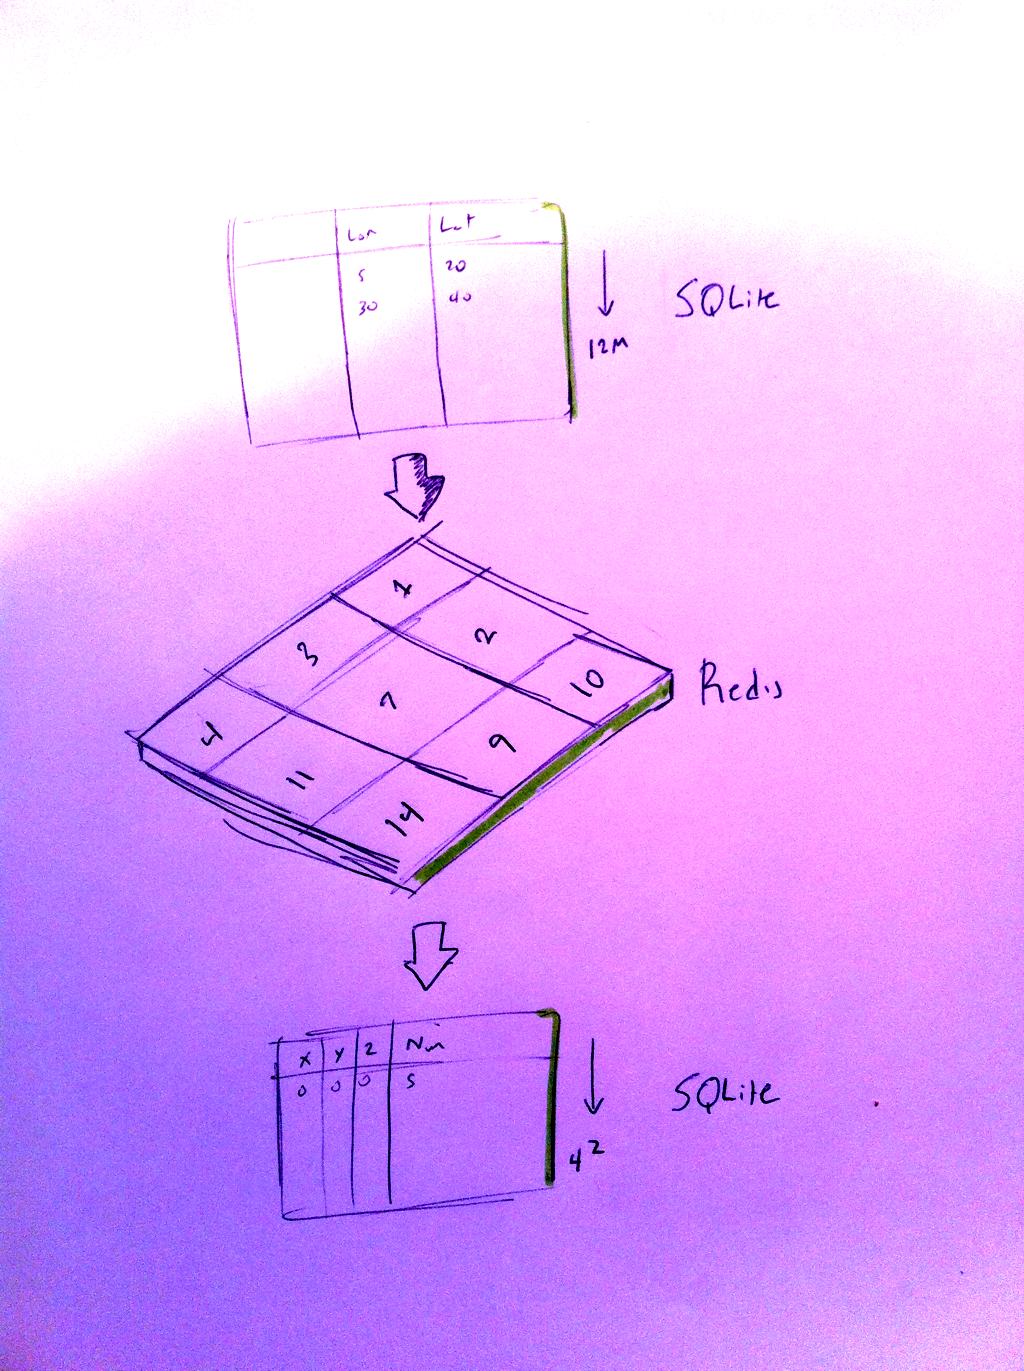 Lon Lat
5 20
30 40
12M
SQLite
1
3 2
4 7 10
11 9
14
Redis
x y z Num
0 0 0 5
4²
SQLite